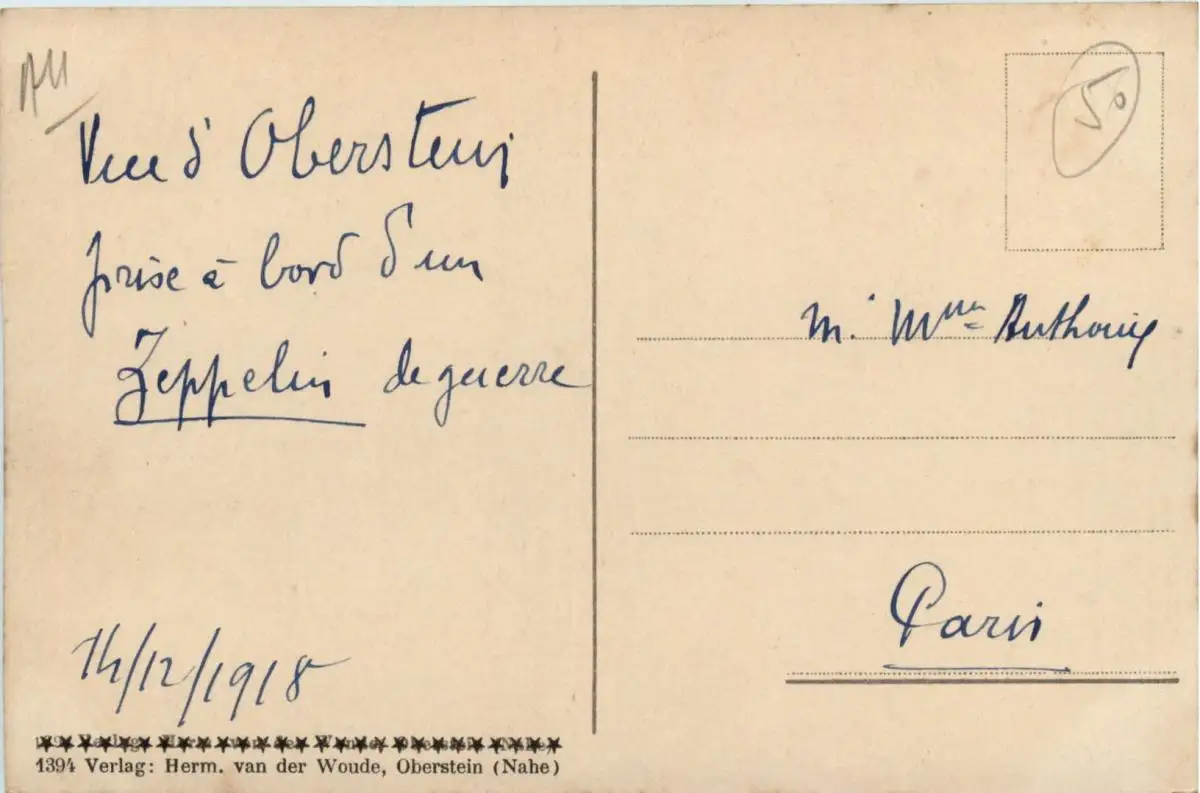 AH
Vue d'Oberstein
prise à bord d'un
Zeppelin de guerre
14/12/1918
1394 Verlag: Herm. van der Woude, Oberstein (Nahe)
50
M. Mme Anthoine
Paris